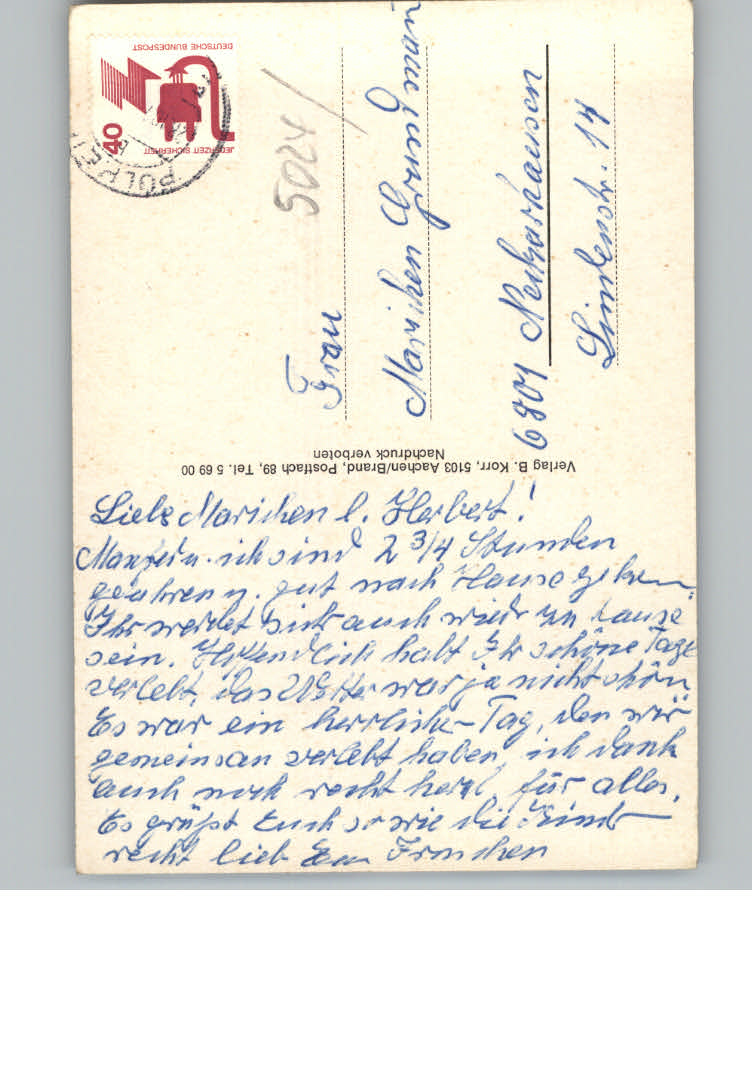 Liebe Marichen l. Herbert!
Manfred u. ich sind 2 3/4 Stunden
gefahren u. gut nach Hause gekom.
Ihr werdet seid auch wieder zu Hause
sein. Hoffendlich habt Ihr schöne Tage
verlebt, das Wetter war ja nicht schön.
Es war ein herrlicher Tag, den wir
gemeinsam verlebt haben, ich dank
auch noch recht herzl. für alles.
Es grüßt Euch sowie die Kinder
recht lieb Eu
Verlag B. Korr, 5103 Aachen/Brand, Postfach 89, Tel. 5 69 00
Nachdruck verboten
Frau
Marichen
6801 Neckarhausen
Lindenstr. 14
5024
DEUTSCHE BUNDESPOST
40
JEDERZEIT SICHERHEIT